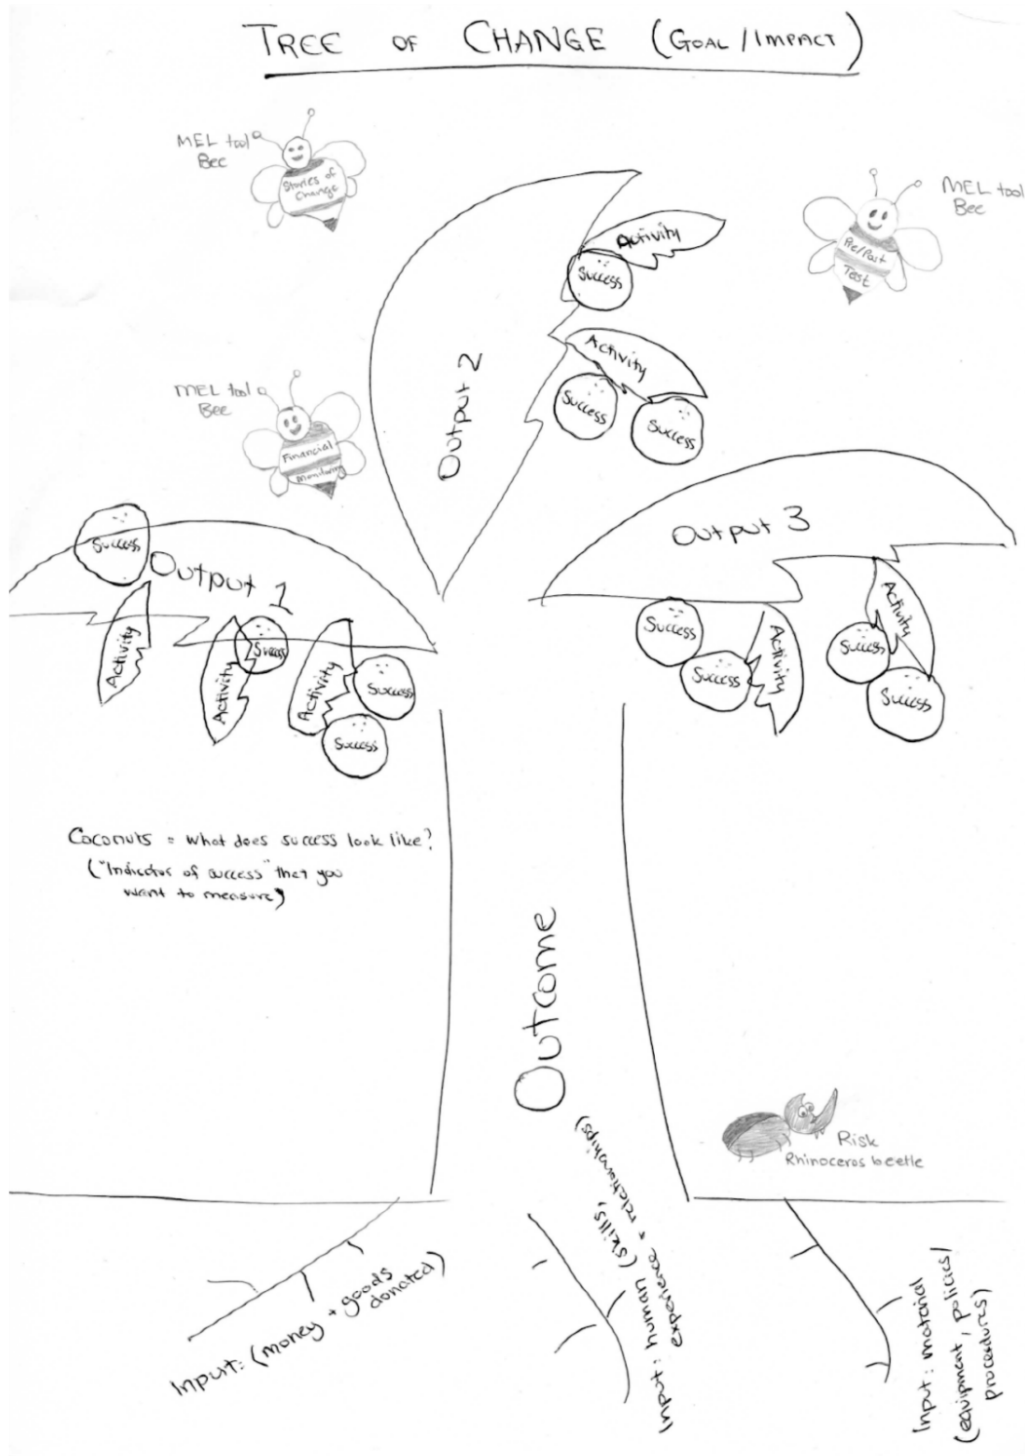 TREE OF CHANGE (GOAL/IMPACT)
MEL tool
Bee
Stories of
Change
MEL tool
Bee
Pre/Post
Test
Activity
Success
Output 2
Activity
Success
Success
MEL tool
Bee
Financial
Monitoring
Success
Output 1
Activity
Activity
Success
Activity
Success
Success
Output 3
Success
Success
Activity
Activity
Success
Success
Coconuts = what does success look like?
("Indicator of success" that you
want to measure)
Outcome
Risk
Rhinoceros beetle
Input: (money + goods
donated)
Input: human (skills,
experience + relationships)
Input: material
(equipment, policies/
procedures)